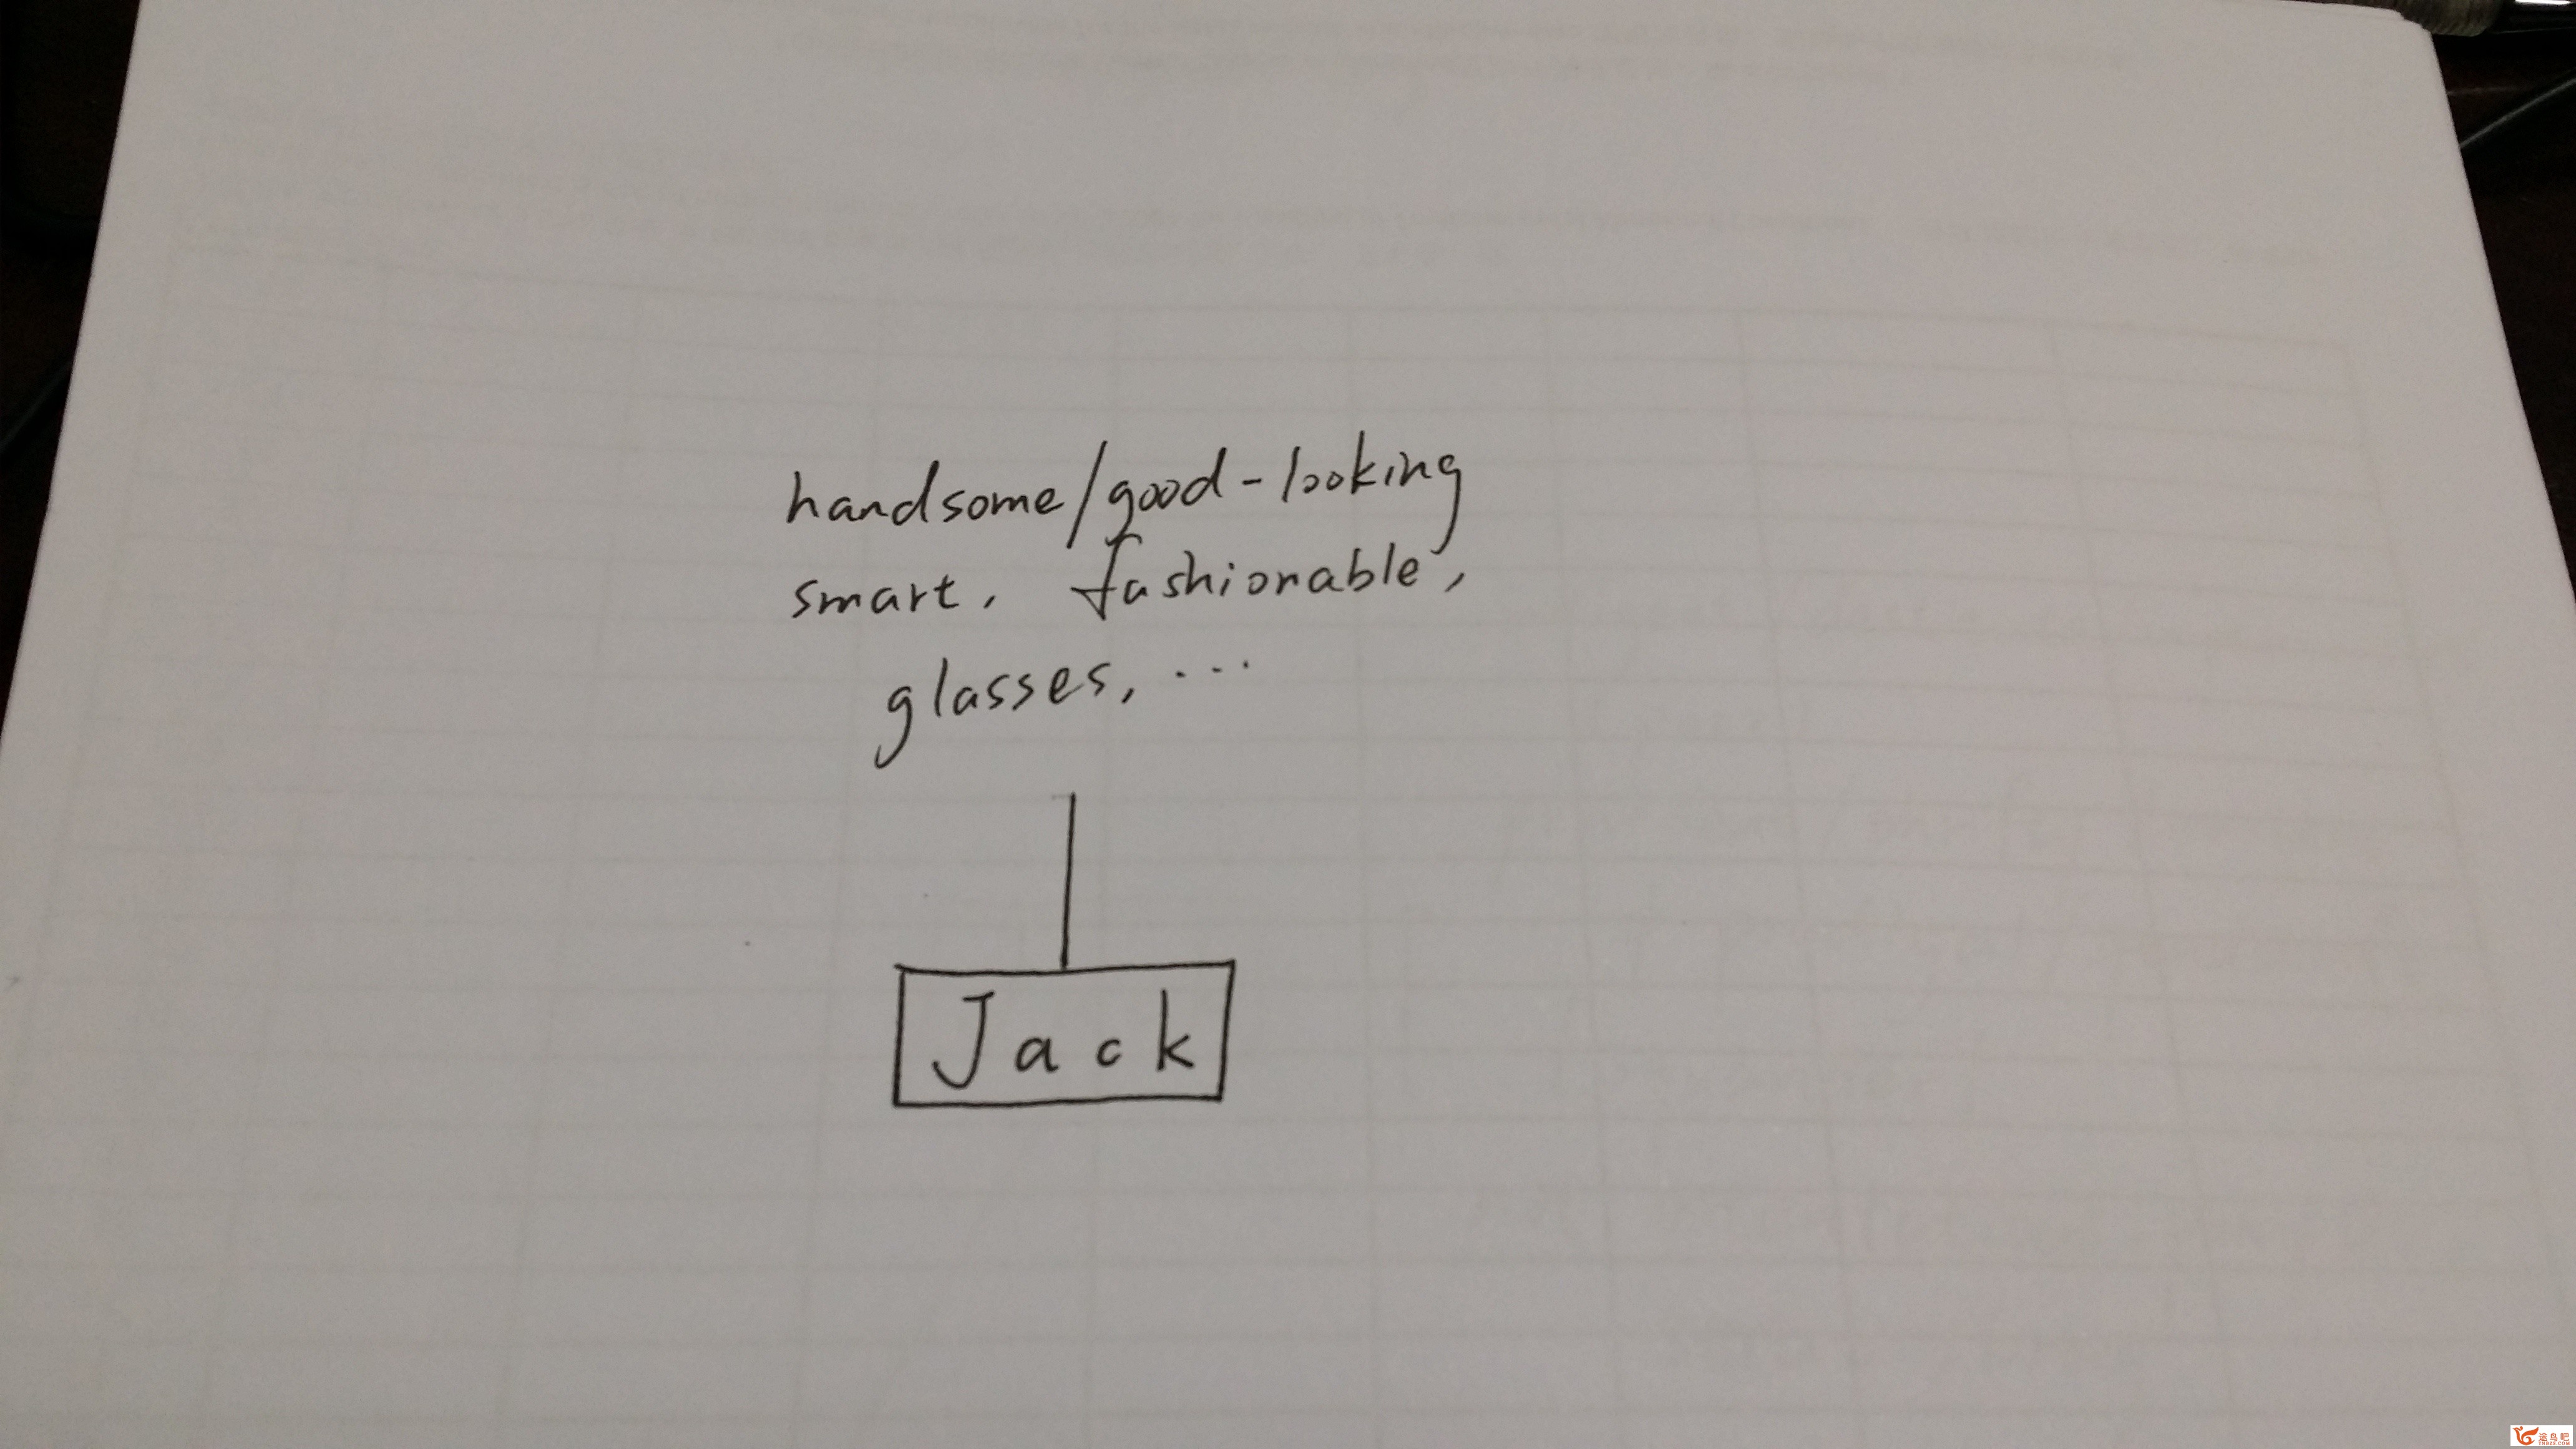 handsome/good-looking
smart, fashionable,
glasses, ...
Jack
途鸟吧